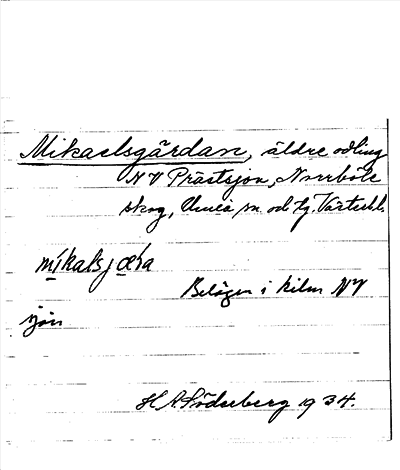 Mikaelsgärdan, äldre odling
NV Prästsjon, Norrböle
skog, Umeå sn. och tg. Västerb.
mikalsjæra
Belägen i kilm NV
sjön
H A Söderberg 1934.